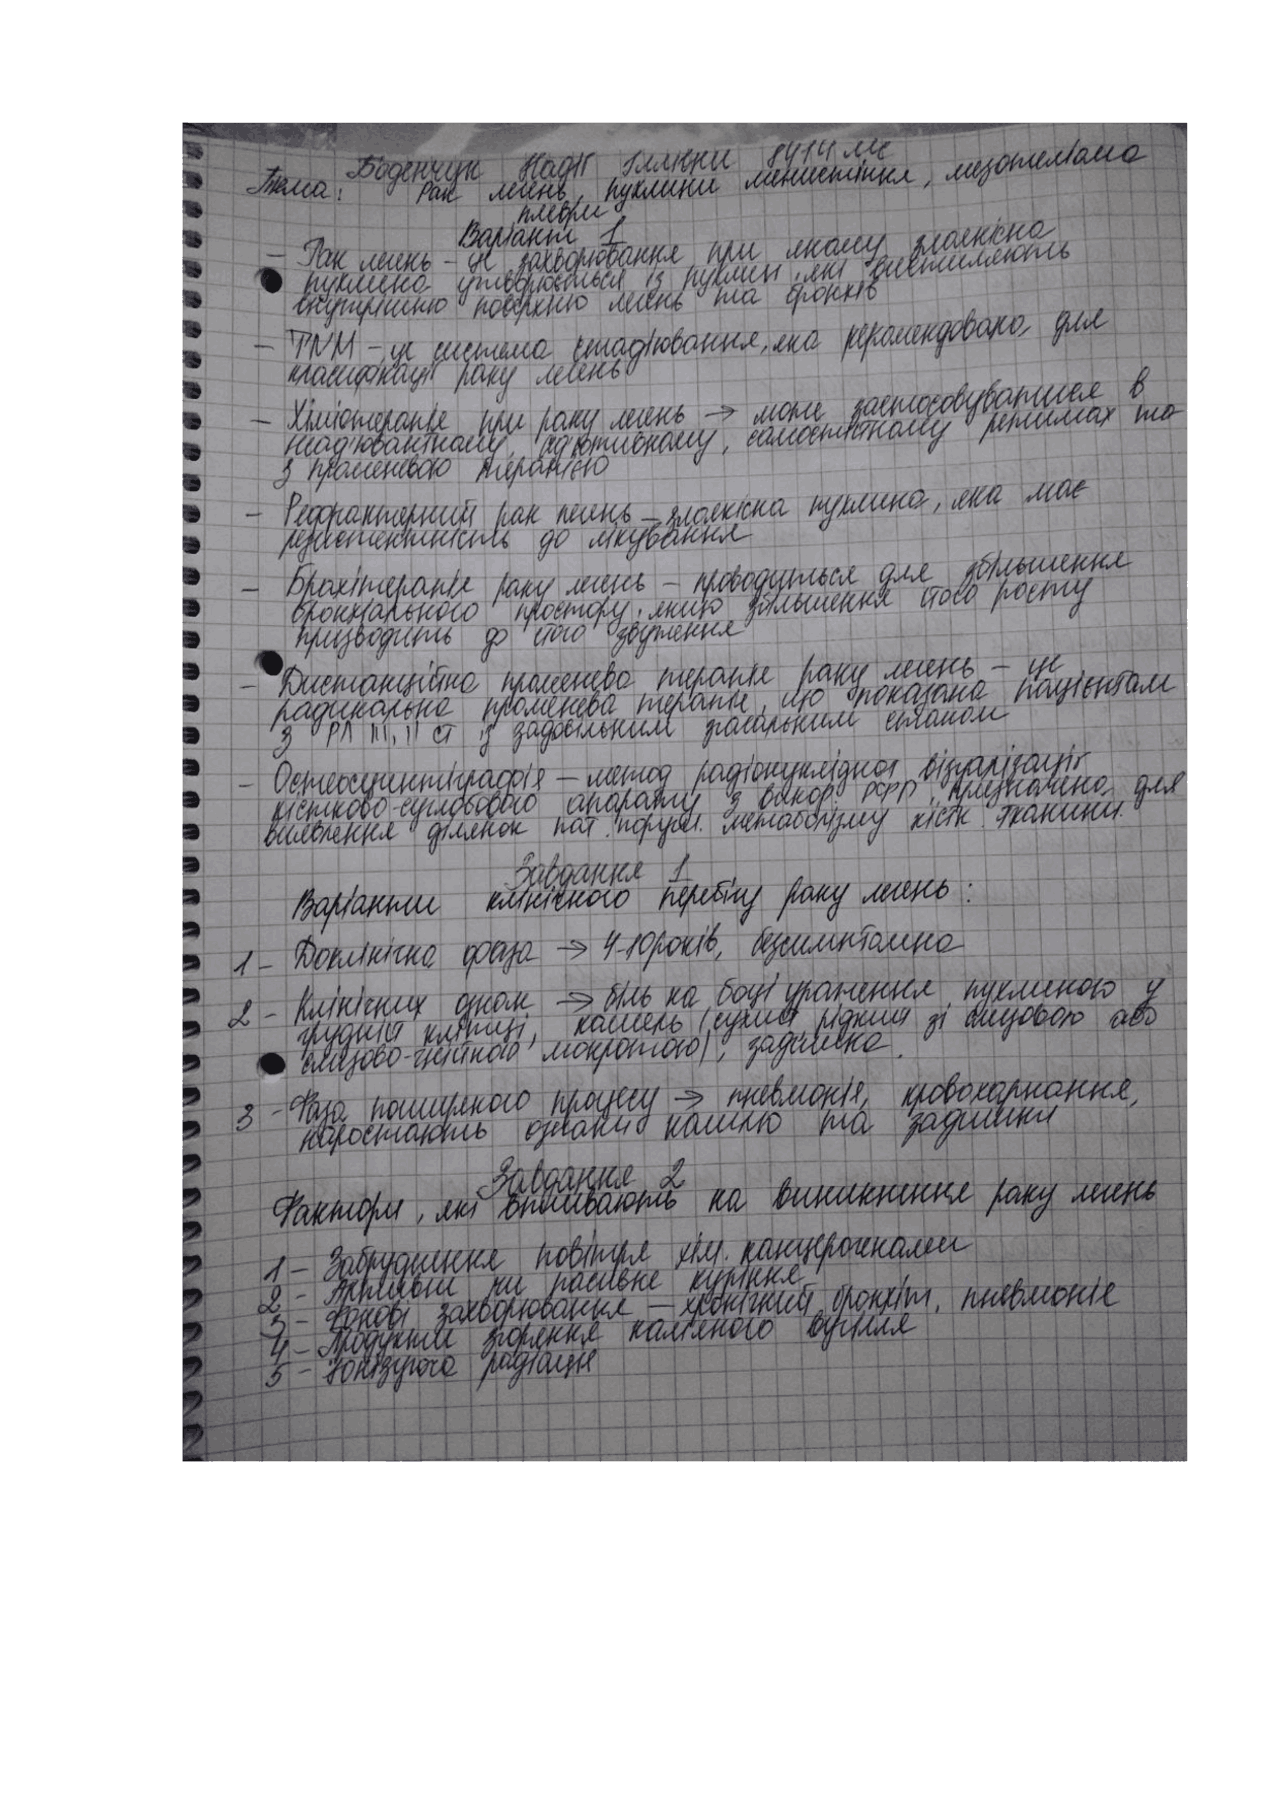 Боденчук Надії Іллівни 8414 мс
Тема: Рак легень, пухлини межистіння, мезотеліома
плеври
Варіант 1
– Рак легень – це захворювання при якому злоякісна
пухлина утворюється із пухлин, які вистиляють
внутрішню поверхню легень та бронхів
– TNM – це система стадіювання, яка рекомендована для
класифікації раку легень
– Хіміотерапія при раку легень → може застосовуватися в
неад'ювантному, ад'ютивному, самостійному режимах та
з променевою терапією
– Рефрактерний рак легень – злоякісна пухлина, яка має
резистентність до лікування
– Брахітерапія раку легень – проводиться для збільшення
бронхіального простору, якщо збільшення його росту
призводить до його звуження
– Дистанційна променева терапія раку легень – це
радикальна променева терапія, що показана пацієнтам
з РЛ III, II ст із задовільним загальним станом
– Остеосцинтіграфія – метод радіонуклідної візуалізації
кістково-суглобового апарату з викор. РФП, призначена для
виявлення ділянок пат. поруш. метаболізму кістк. тканини.
Завдання 1
Варіанти клінічного перебігу раку легень:
1 – Доклінічна фаза → 4-10 років, безсимптомна
2 – Клінічних ознак → біль на боці ураження пухлиною у
грудній клітці, кашель (сухий, рідкий зі слизовою або
слизово-гнійною мокротою), задишка.
3 – Фаза поширеного процесу → пневмонія, кровохаркання,
наростають ознаки кашлю та задишки
Завдання 2
Фактори, які впливають на виникнення раку легень
1 – Забруднення повітря хім. канцерогенами
2 – Активне чи пасивне куріння
3 – Фонові захворювання – хронічний бронхіт, пневмонія
4 – Продукти згорення кам'яного вугілля
5 – Іонізуюча радіація